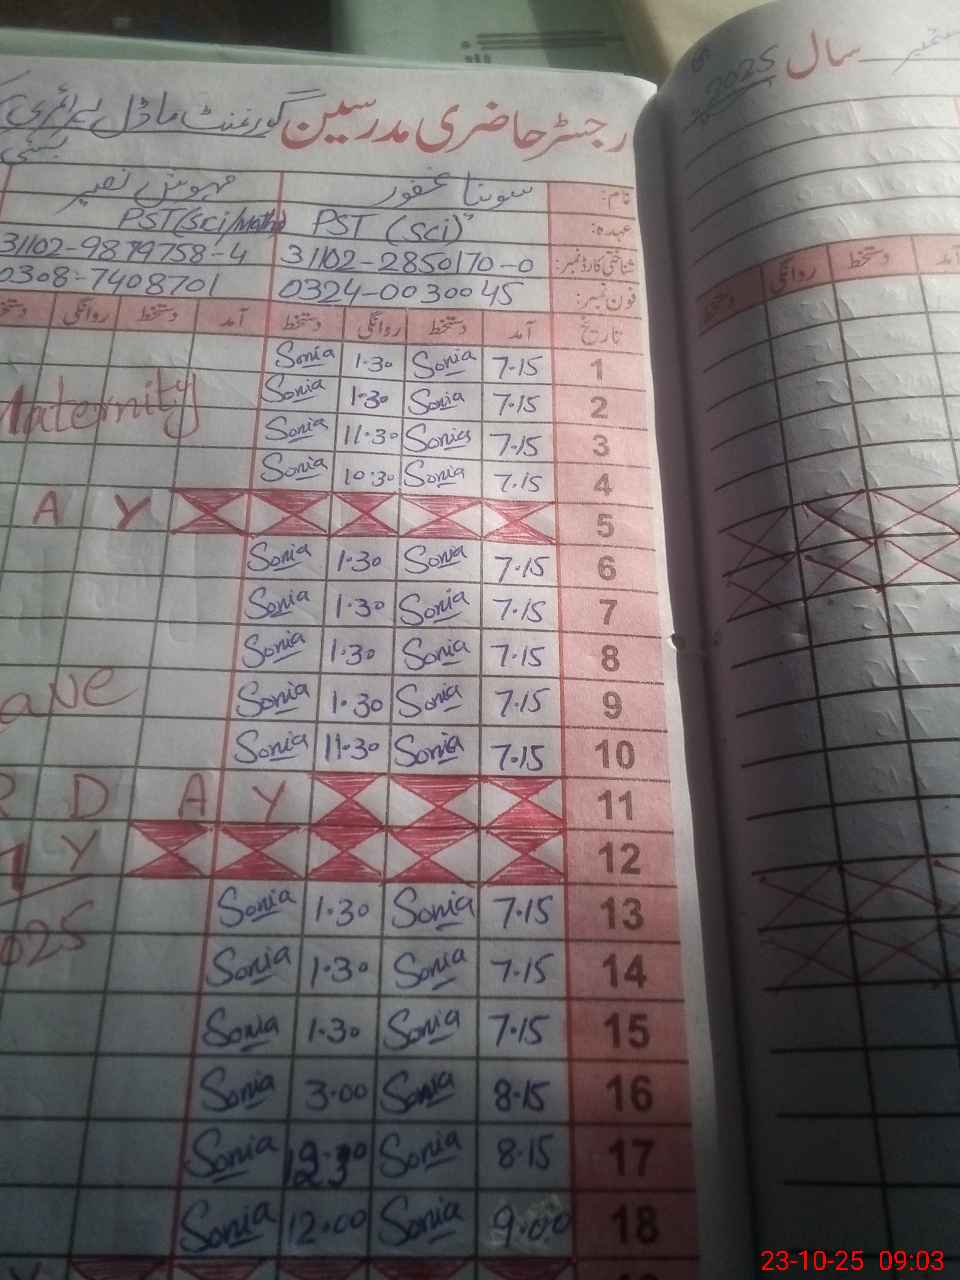 سال 2025 ستمبر
رجسٹر حاضری مدرسین گورنمنٹ ماڈل پرائمری
بستی
نام: سونیا غفور مہوش نصیر
عہدہ: PST (Sci) PST (Sci/Math)
شناختی کارڈ نمبر: 31102-2850170-0 31102-9879758-4
فون نمبر: 0324-0030045 0308-7408701
تاریخ آمد دستخط روانگی دستخط آمد دستخط روانگی دستخط
آمد دستخط روانگی دستخط
1 7.15 Sonia 1.30 Sonia
2 7.15 Sonia 1.30 Sonia Maternity
3 7.15 Sonia 11.30 Sonia
4 7.15 Sonia 10.30 Sonia
5 A Y
6 7.15 Sonia 1.30 Sonia
7 7.15 Sonia 1.30 Sonia
8 7.15 Sonia 1.30 Sonia
9 7.15 Sonia 1.30 Sonia eave
10 7.15 Sonia 11.30 Sonia
11 R D A Y
12 Y
13 7.15 Sonia 1.30 Sonia
14 7.15 Sonia 1.30 Sonia 025
15 7.15 Sonia 1.30 Sonia
16 8.15 Sonia 3.00 Sonia
17 8.15 Sonia 12.30 Sonia
18 9.00 Sonia 12.00 Sonia
23-10-25 09:03